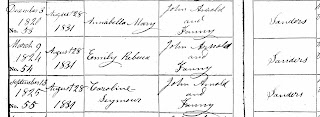 December 5 August 28 John Arnold
1821 1831 Annabella Mary and Sanders
No. 53 Fanny
March 9 August 28 John Arnold
1824 1831 Emily Rebecca and Sanders
No. 54 Fanny
September 13 August 28 Caroline John Arnold
1825 1831 Seymour and Sanders
No. 55 Fanny